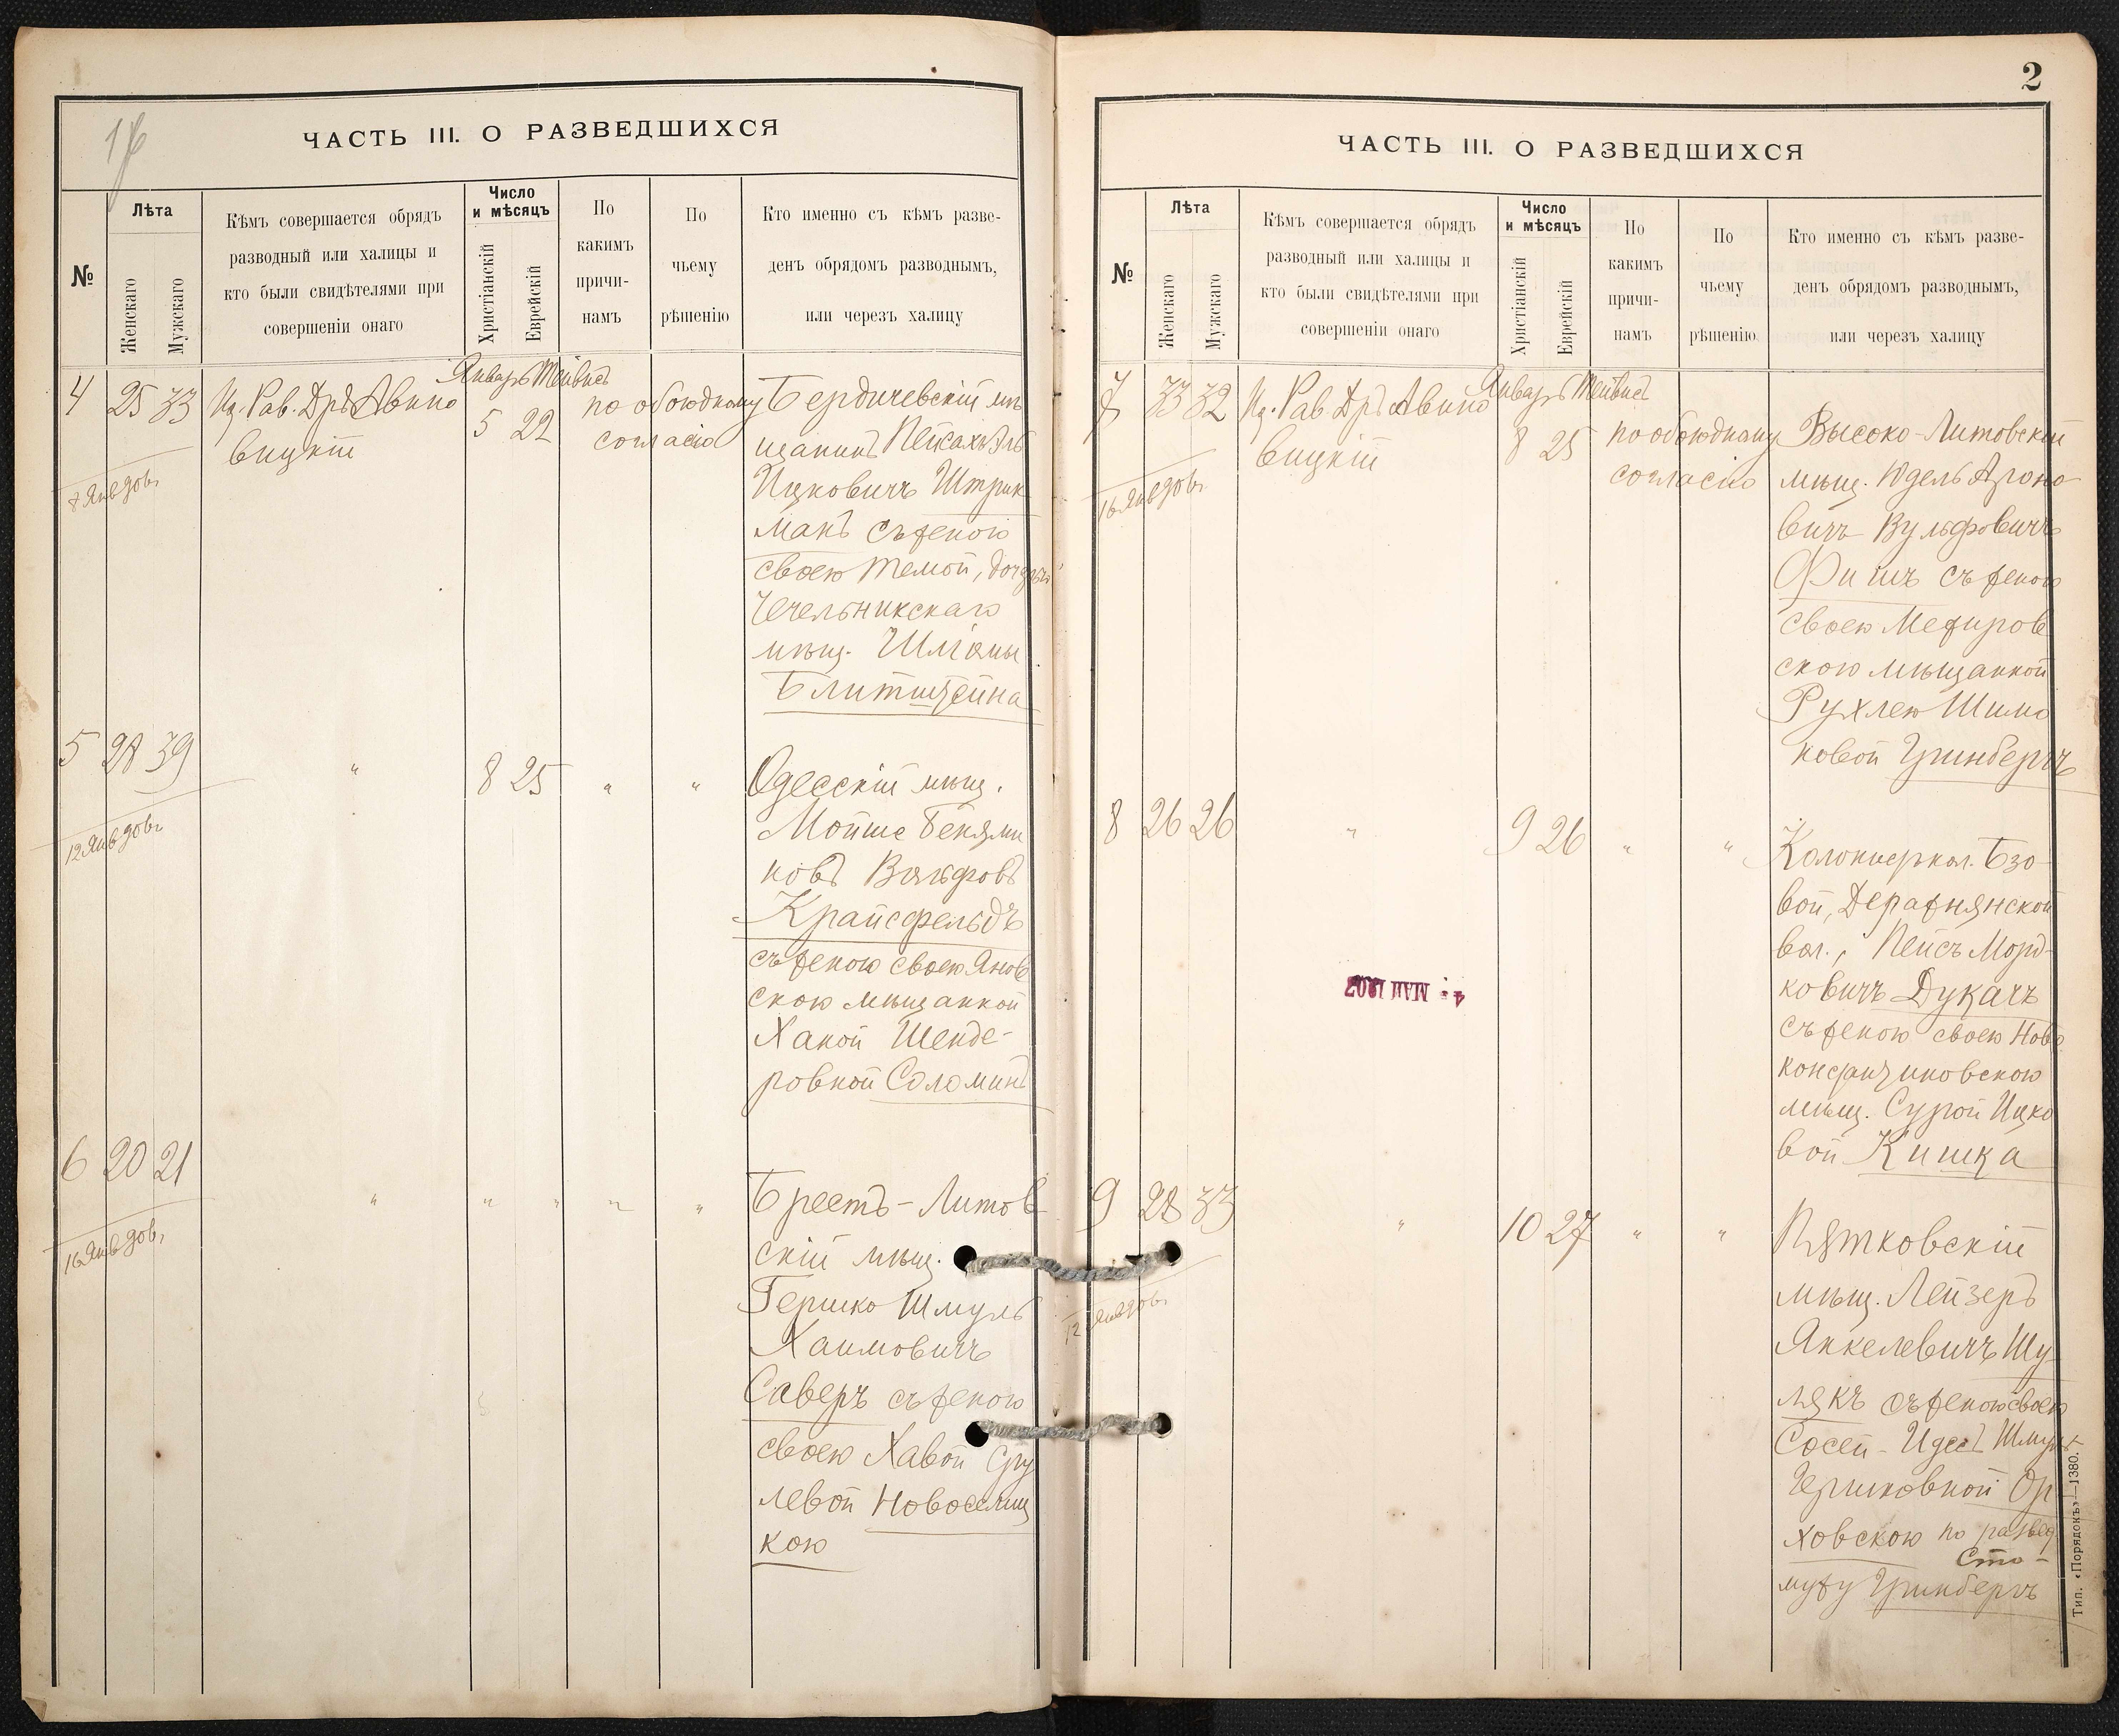 ЧАСТЬ III. О РАЗВЕДШИХСЯ
№
Лѣта
Женскаго
Мужскаго
Кѣмъ совершается обрядъ
разводный или халицы и
кто были свидѣтелями при
совершеніи онаго
Число
и мѣсяцъ
Христіанскій
Еврейскій
По
какимъ
причи-
намъ
По
чьему
рѣшенію
Кто именно съ кѣмъ разве-
денъ обрядомъ разводнымъ,
или черезъ халицу
Январь Тейвисъ
4 25 33
Рав. Дръ Авино
вицкій
5 22
по обоюдному
согласію
Бердичевскій мѣ
щанинъ Пейсахъ
Ицковичъ Штрик
манъ съ женою
своею Темой, дочерью
Чечельникскаго
мѣщ. Шлёмы
Блитштейна
8 Янв
5 28 39
" 8 25 " "
Одесскій мѣщ.
Мойше Бенями
новъ Вольфовъ
Крайсфельдъ
съ женою своею Янов
скою мѣщанкой
Ханой Шенде-
ровной Соломинъ
12 Янв
6 20 21
" " " " "
Брестъ-Литов
скій мѣщ.
Гершко Шмуль
Хаимовичъ
Саверъ съ женою
своею Хавой Сру
левой Новоселиц
кою
16 Янв
2
ЧАСТЬ III. О РАЗВЕДШИХСЯ
№
Лѣта
Женскаго
Мужскаго
Кѣмъ совершается обрядъ
разводный или халицы и
кто были свидѣтелями при
совершеніи онаго
Число
и мѣсяцъ
Христіанскій
Еврейскій
По
какимъ
причи-
намъ
По
чьему
рѣшенію
Кто именно съ кѣмъ разве-
денъ обрядомъ разводнымъ,
или черезъ халицу
Январь Тейвисъ
7 33 32
Рав Дръ Авино
вицкій
8 25
по обоюдному
согласію
Высоко-Литовскій
мѣщ. Юдель Ароно
вичъ Вульфовичъ
Фишъ съ женою
своею Межиров
скою мѣщанкой
Рухлею Шимо
новой Гринбергъ
16 Янв
8 26 26
" 9 26 " "
Колонистъ кол. Бзо-
вой, Деражнянской
вол., Пейсъ Морд-
ковичъ Дукачъ
съ женою своею Ново
константиновскою
мѣщ. Сурой Ицко
вой Кишка
4- МАЙ 1907
9 28 33
" 10 27 " "
Пятковскій
мѣщ. Лейзеръ
Янкелевичъ Шу-
лякъ съ женою своею
Сосей-Идесъ Шмуль
Гершковной Ор-
ховскою по развед.
мужу Гринбергъ
12 Янв
Тип. «Порядокъ»—1380.